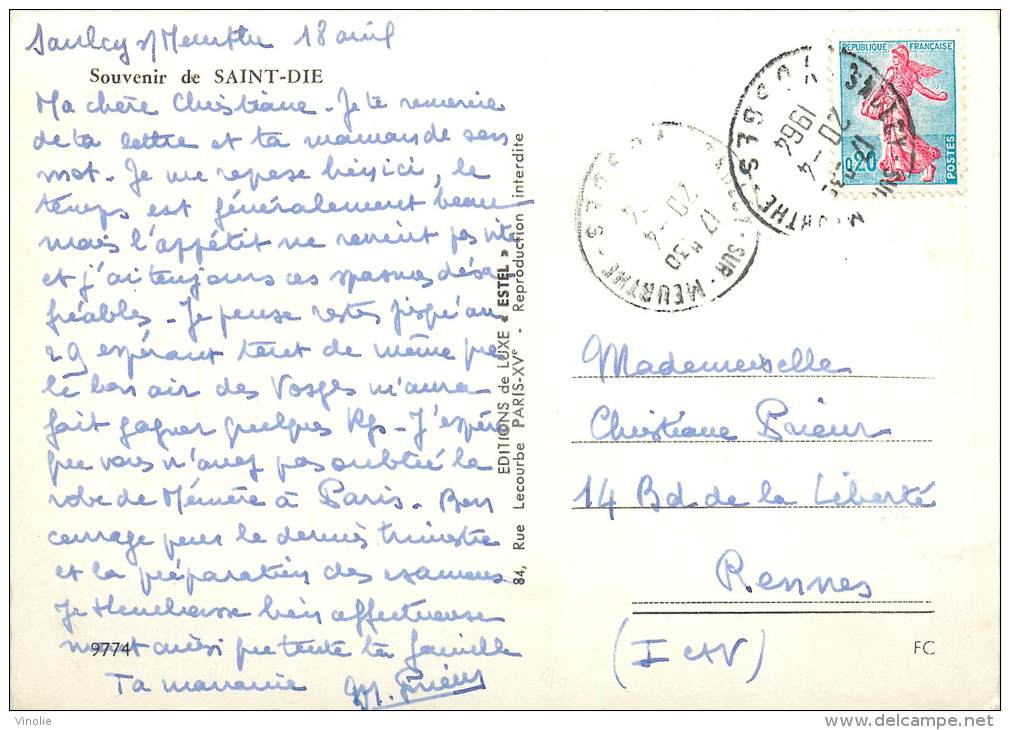 Saulcy s/ Meurthe 18 avril
Souvenir de SAINT-DIE
Ma chère Christiane - Je te remercie
de ta lettre et ta maman de son
mot. Je me repose bien ici, le
temps est généralement beau
mais l'appétit ne revient pas vite
et j'ai toujours ces spasmes désa
gréables - Je pense rester jusqu'au
29 espérant tout de même que
le bon air des Vosges m'aura
fait gagner quelques Kgs - J'espère
que vous n'avez pas oublié la
robe de Mémère à Paris. Bon
courage pour le dernier trimestre
et la préparation des examens
Je t'embrasse bien affectueuse
ment ainsi que toute ta famille
Ta marraine M. Prieur
9774
EDITIONS de LUXE « ESTEL »
84, Rue Lecourbe PARIS-XVe - Reproduction interdite
REPUBLIQUE FRANÇAISE
0,20
POSTES
SAULCY-SUR-MEURTHE VOSGES
17 H 30
20 -4
1964
SUR-MEURTHE
17 H 30
20 -4
Mademoiselle
Christiane Prieur
14 Bd de la Liberté
Rennes
(I et V)
FC
Vinolie
www.delcampe.net